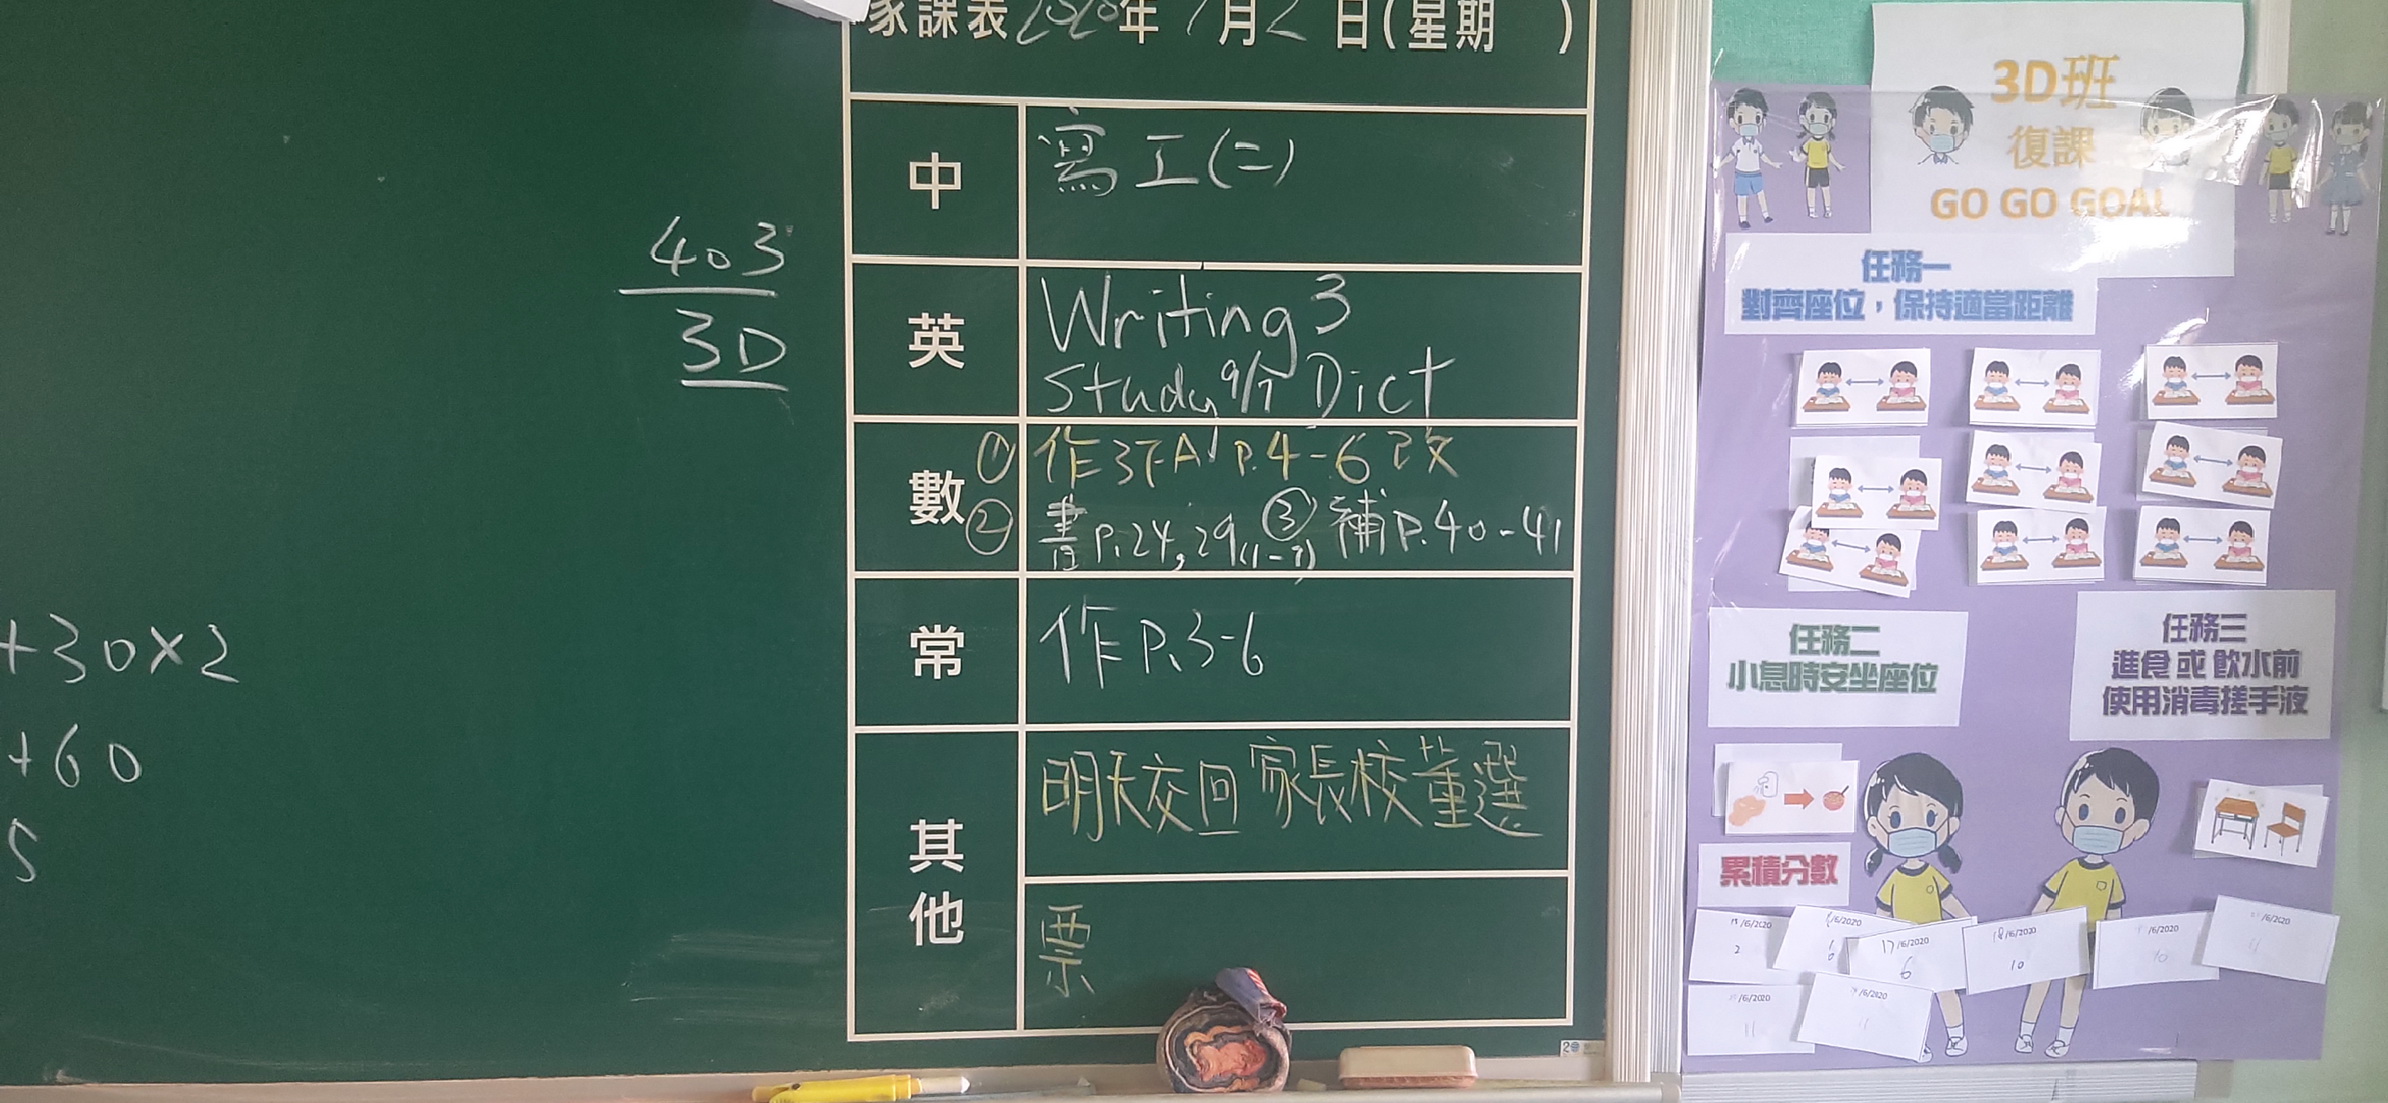 家課表2020年7月2日(星期 )
中
寫工(二)
403
3D
英
Writing 3
Study 9/7 Dict
數
① 作3下A P.4-6 改
② 書 P.24, 29(1-7) ③ 補 P.40-41
常
作 P.3-6
其他
明天交回家長校董選
票
+30×2
+60
5
3D班
復課
GO GO GOAL
任務一
對齊座位，保持適當距離
任務二
小息時安坐座位
任務三
進食 或 飲水前
使用消毒搓手液
累積分數
/6/2020
2
/6/2020
6
17/6/2020
6
18/6/2020
10
/6/2020
10
/6/2020
11
/6/2020
11
/6/2020